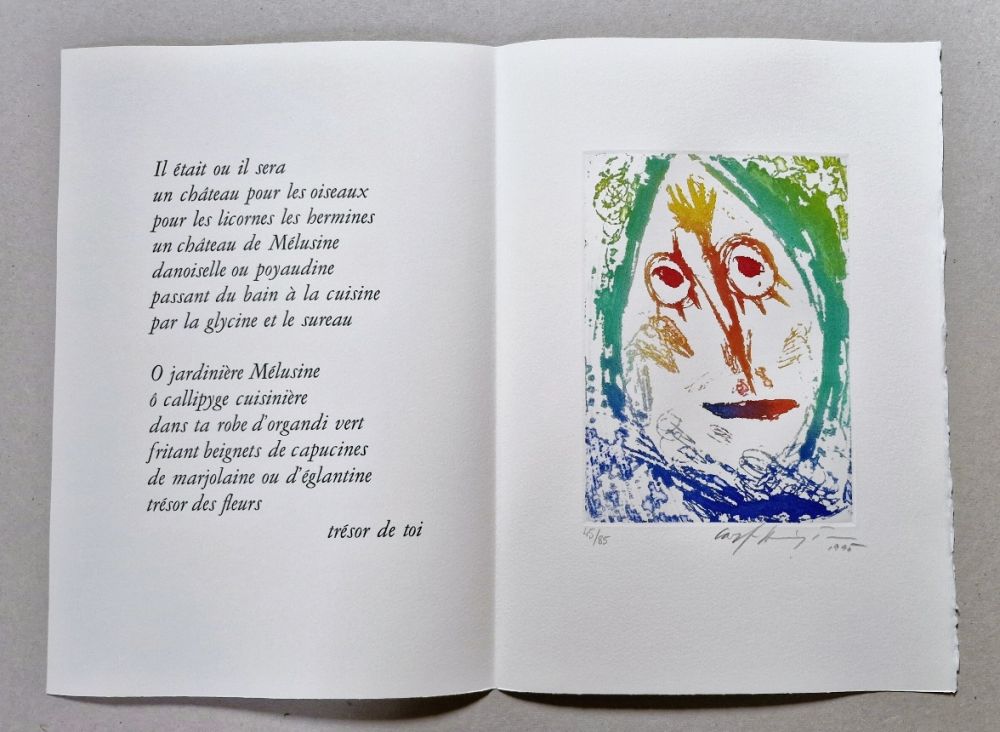 Il était ou il sera
un château pour les oiseaux
pour les licornes les hermines
un château de Mélusine
danoiselle ou poyaudine
passant du bain à la cuisine
par la glycine et le sureau
O jardinière Mélusine
ô callipyge cuisinière
dans ta robe d'organdi vert
fritant beignets de capucines
de marjolaine ou d'églantine
trésor des fleurs
trésor de toi
45/85